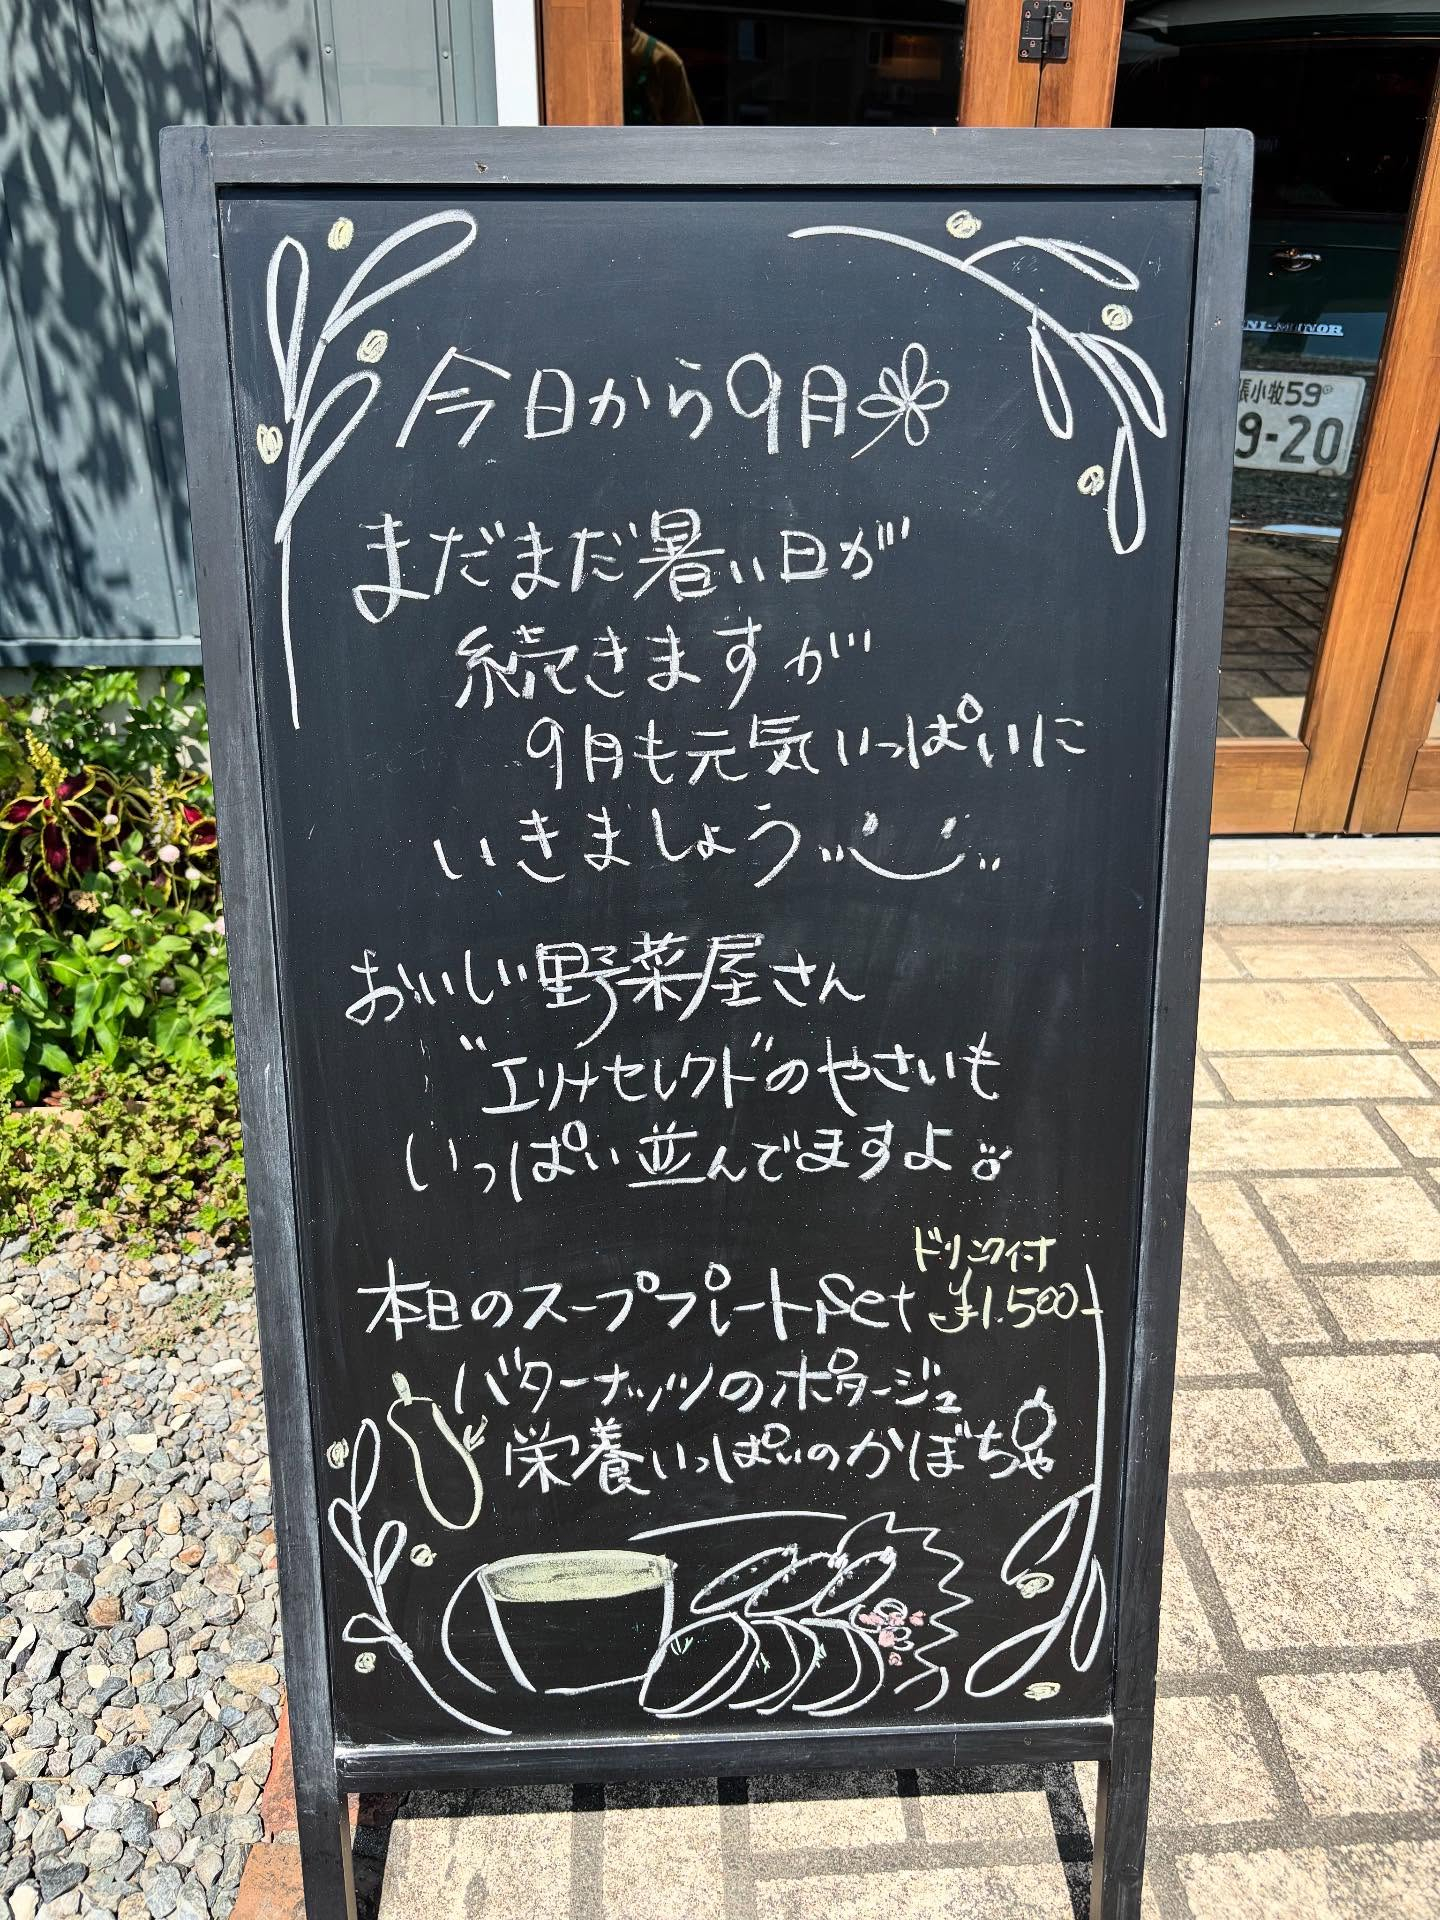 今日から9月
まだまだ暑い日が
続きますが
9月も元気いっぱいに
いきましょう
おいしい野菜屋さん
"エリナセレクト"のやさいも
いっぱい並んでますよ
ドリンク付
本日のスーププレートset ¥1.500-
バターナッツのポタージュ
栄養いっぱいのかぼちゃ
NI-MINOR
張小牧59
9-20